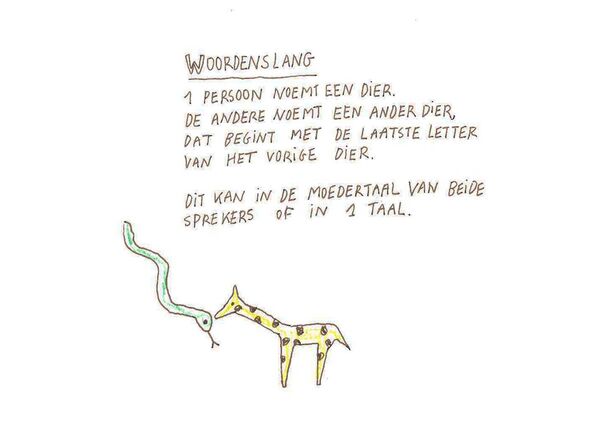 WOORDENSLANG
1 PERSOON NOEMT EEN DIER.
DE ANDERE NOEMT EEN ANDER DIER,
DAT BEGINT MET DE LAATSTE LETTER
VAN HET VORIGE DIER.
DIT KAN IN DE MOEDERTAAL VAN BEIDE
SPREKERS OF IN 1 TAAL.